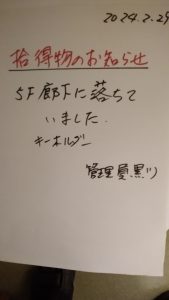 2024.2.29
拾得物のお知らせ
5F廊下に落ちて
いました.
キーホルダー
管理員黒川